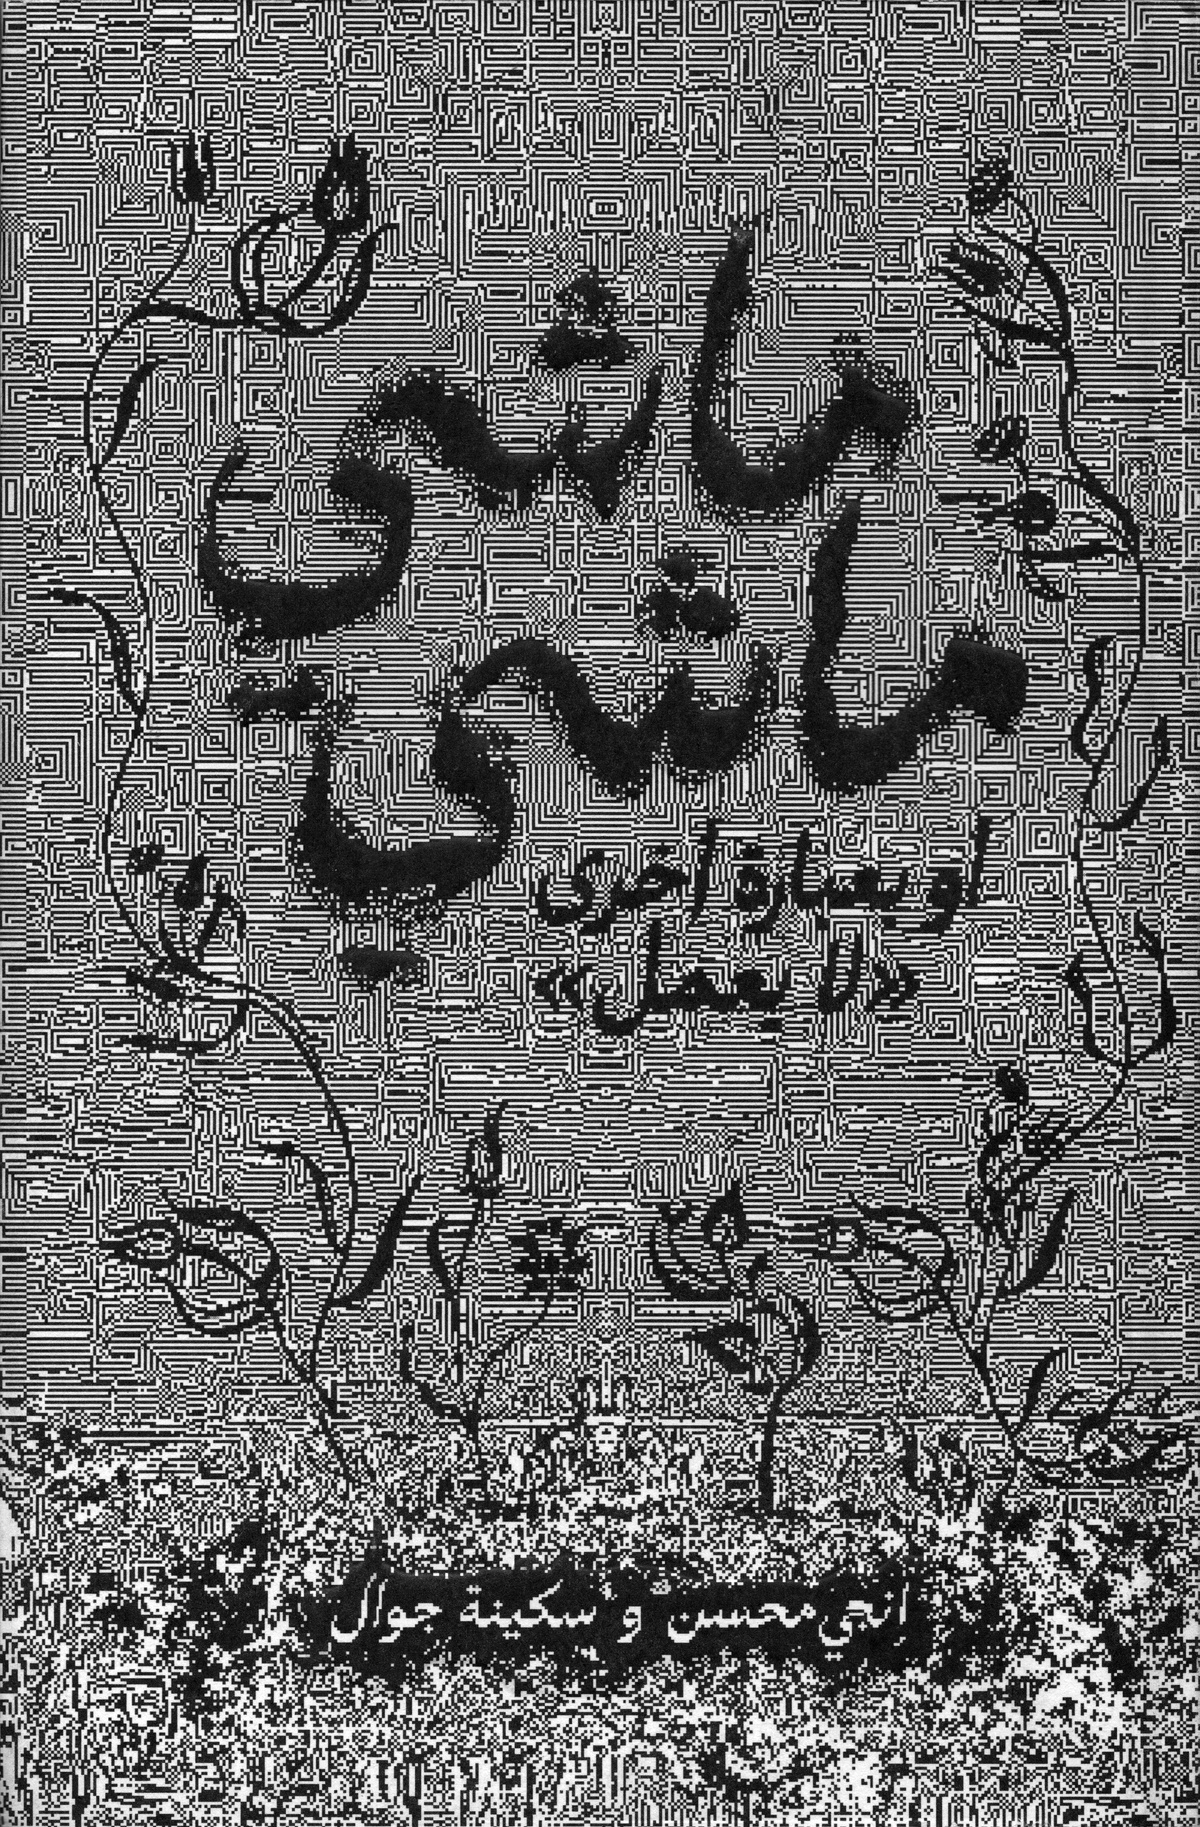 ماشي
ماشي
او بعبارة اخرى
«لا يعمل»
انجي محسن و سكينة جوال